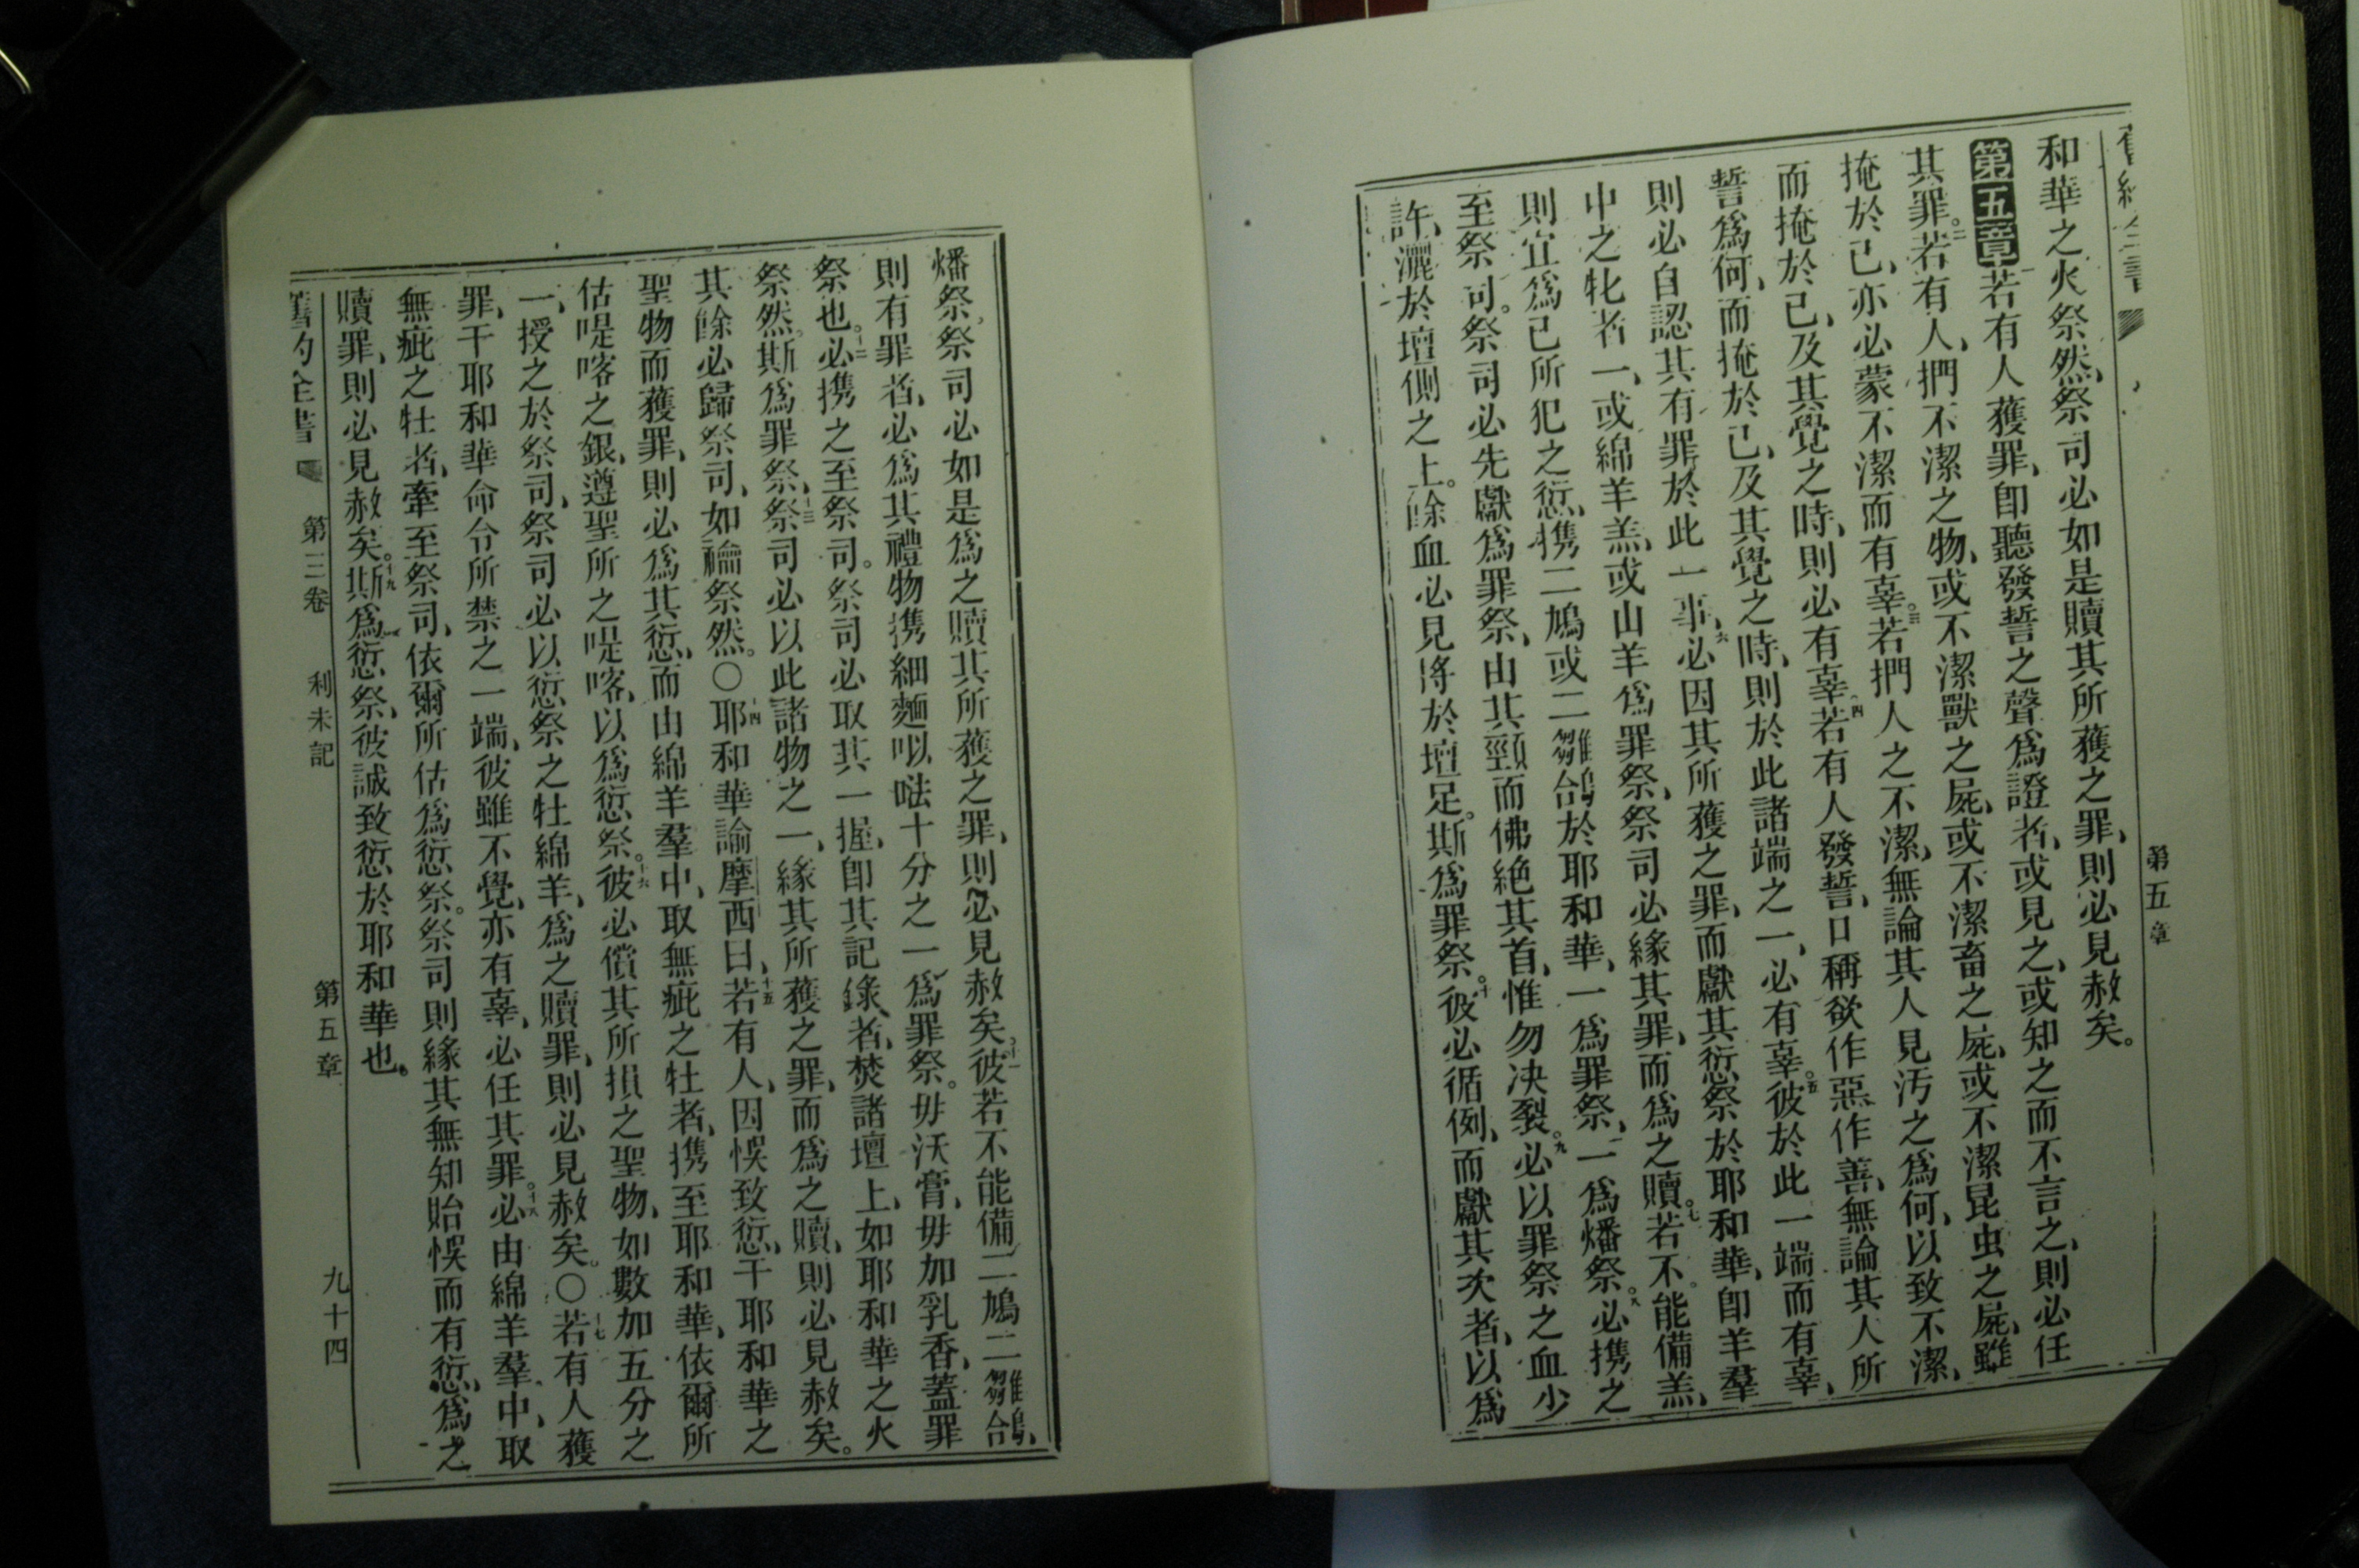 第五章
和華之火祭然、祭司必如是贖其所獲之罪、則必見赦矣。
第五章 一若有人獲罪、卽聽發誓之聲爲證者、或見之、或知之而不言之、則必任
其罪。二若有人、捫不潔之物、或不潔獸之屍、或不潔畜之屍、或不潔昆虫之屍、雖
掩於已、亦必蒙不潔而有辜。三若捫人之不潔、無論其人見汚之爲何、以致不潔、
而掩於已、及其覺之時、則必有辜。四若有人發誓、口稱欲作惡作善、無論其人所
誓爲何、而掩於已、及其覺之時、則於此諸端之一、必有辜。五彼於此一端而有辜、
則必自認其有罪於此一事、六必因其所獲之罪、而獻其愆祭於耶和華、卽羊羣
中之牝者一、或綿羊羔、或山羊爲罪祭、祭司必緣其罪、而爲之贖。七若不能備羔、
則宜爲已所犯之愆、携二鳩或二雛鴿於耶和華、一爲罪祭、一爲燔祭。八必携之
至祭司。祭司必先獻爲罪祭、由其頸而佛絶其首、惟勿决裂。九必以罪祭之血少
許、灑於壇側之上。餘血必見將於壇足。斯爲罪祭。十彼必循例、而獻其次者、以爲
燔祭。祭司必如是爲之贖其所獲之罪、則必見赦矣。十一彼若不能備二鳩二雛鴿、
則有罪者、必爲其禮物携細麵㕥㗓十分之一爲罪祭。毋沃膏、毋加乳香、蓋罪
祭也。十二必携之至祭司。祭司必取其一握、卽其記錄者、焚諸壇上、如耶和華之火
祭然。斯爲罪祭、十三祭司必以此諸物之一、緣其所獲之罪、而爲之贖、則必見赦矣。
其餘必歸祭司、如禴祭然。〇十四耶和華諭摩西曰、十五若有人、因悞致愆、干耶和華之
聖物而獲罪、則必爲其愆、而由綿羊羣中、取無疵之牡者、携至耶和華、依爾所
估㖷喀之銀、遵聖所之㖷喀、以爲愆祭。十六彼必償其所損之聖物、如數加五分之
一、授之於祭司、祭司必以愆祭之牡綿羊、爲之贖罪、則必見赦矣。〇十七若有人獲
罪、干耶和華命令所禁之一端、彼雖不覺、亦有辜、必任其罪。十八必由綿羊羣中、取
無疵之牡者、牽至祭司、依爾所估爲愆祭。祭司則緣其無知貽悞而有愆、爲之
贖罪、則必見赦矣。十九斯爲愆祭、彼誠致愆於耶和華也。
舊約全書 第三卷 利未記 第五章 九十四